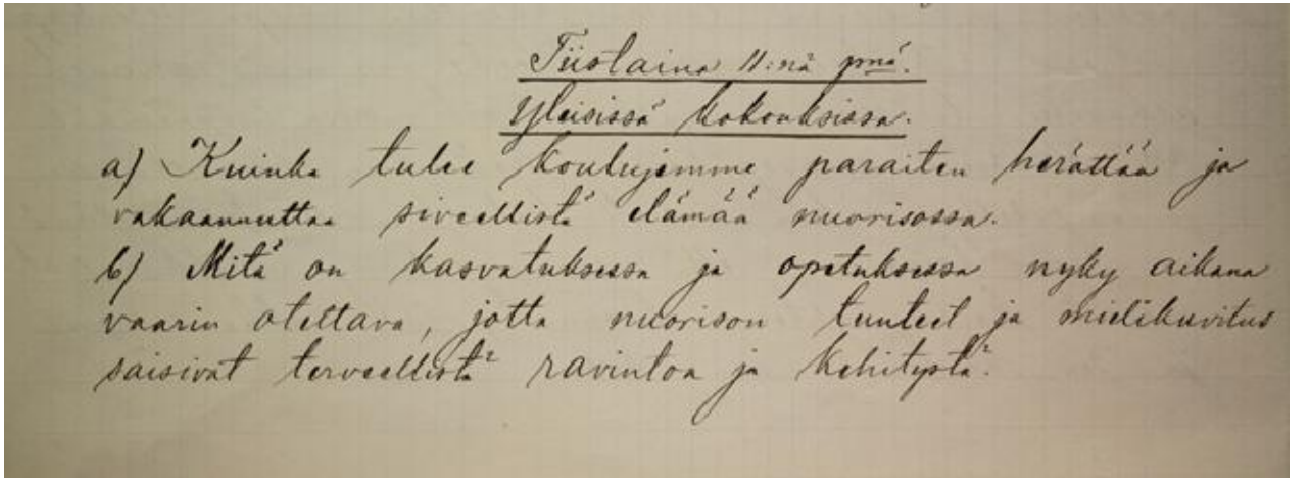 Tiistaina 11:nä pnä.
Yleisissä kokouksissa.
a) Kuinka tulee koulujemme paraiten herättää ja
vakaannuttaa siveellistä elämää nuorisossa.
b) Mitä on kasvatuksessa ja opetuksessa nyky aikana
vaarin otettava, jotta nuorison tunteet ja mielikuvitus
saisivat terveellistä ravintoa ja kehitystä.